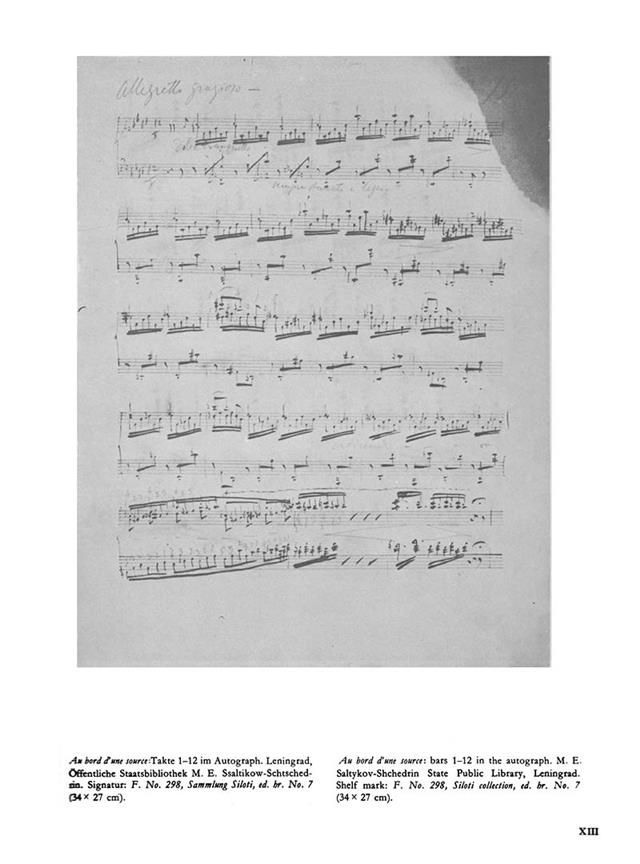 Allegretto grazioso —
sempre
Au bord d'une source: Takte 1–12 im Autograph. Leningrad,
Öffentliche Staatsbibliothek M. E. Ssaltikow-Schtsched-
rin. Signatur: F. No. 298, Sammlung Siloti, ed. hr. No. 7
(34 × 27 cm).
Au bord d'une source: bars 1–12 in the autograph. M. E.
Saltykov-Shchedrin State Public Library, Leningrad.
Shelf mark: F. No. 298, Siloti collection, ed. hr. No. 7
(34 × 27 cm).
XIII